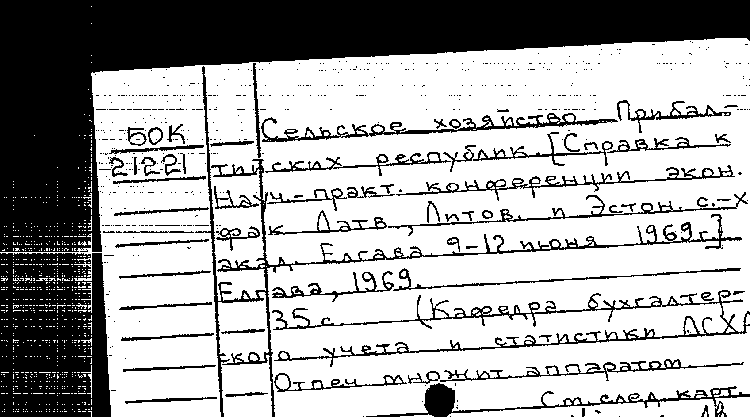 БОК
21221
Сельское хозяйство Прибал-
тийских республик. [Справка к
Науч.-практ. конференции экон.
фак Латв., Литов. и Эстон. с.-х
акад. Елгава 9-12 июня 1969 г.]
Елгава, 1969.
35 с. (Кафедра бухгалтер-
ского учета и статистики ЛСХА
Отпеч множит. аппаратом.
См. след. карт.